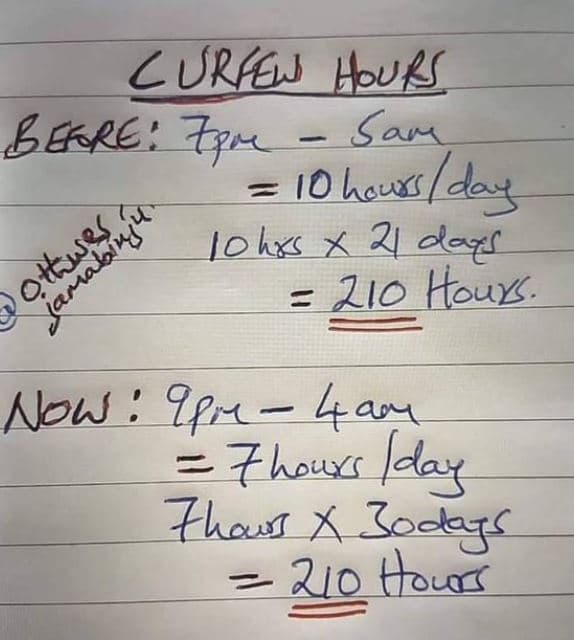 CURFEW HOURS
BEFORE: 7pm - 5am
= 10 hours/day
10 hrs x 21 days
= 210 Hours.
NOW: 9pm - 4am
= 7 hours/day
7 hours x 30 days
= 210 Hours